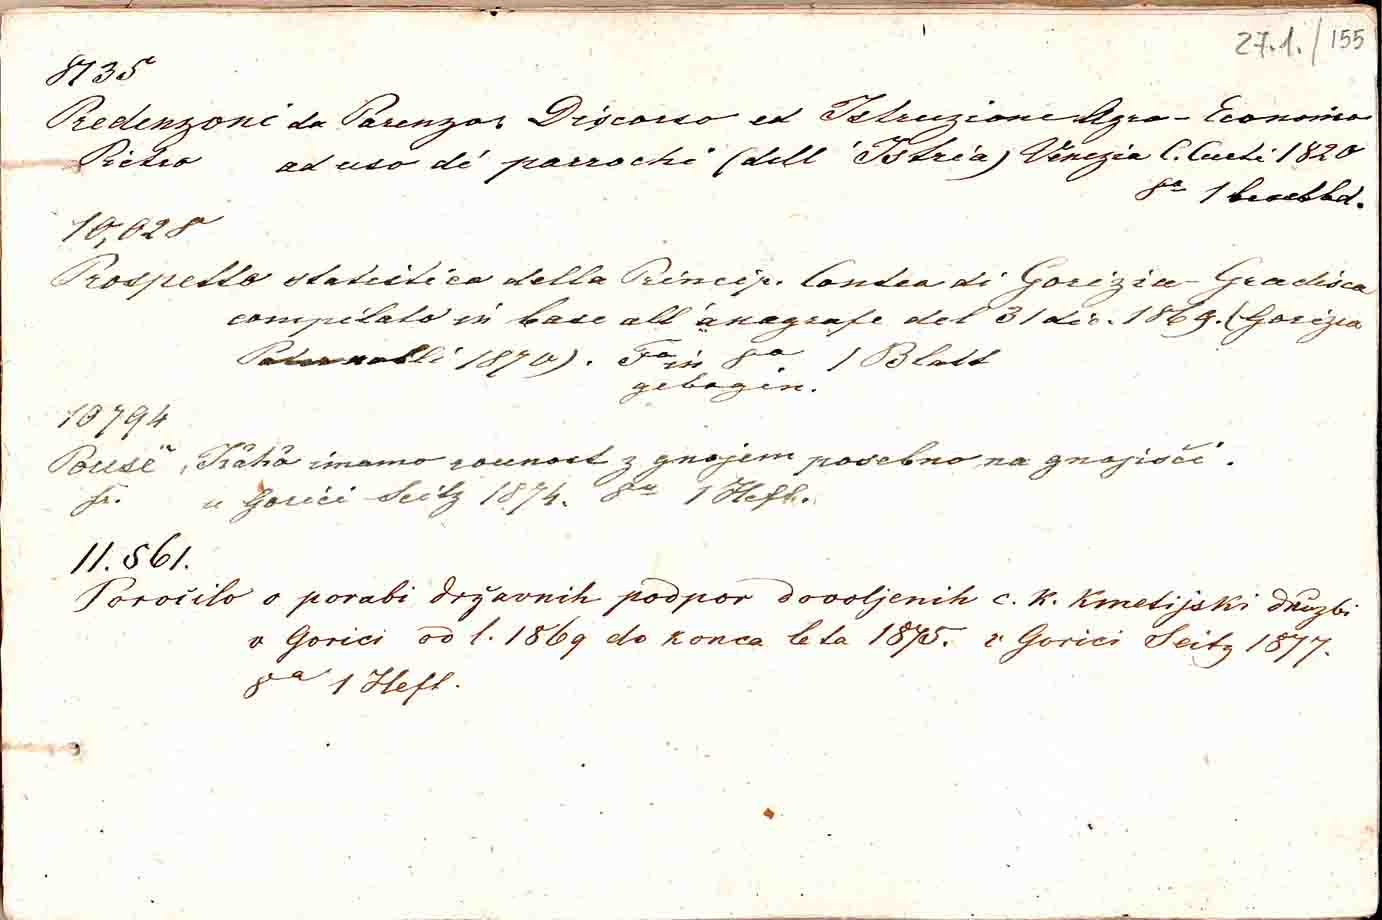 27.1./155
8735
Predenzoni da Parenzo, Discorso ed Istruzione Agro-Economico
Pietro ad uso di parrochi (dell' Istria) Venezia C. Curti 1820
8º 1
10,028
Prospetto statistico della Princip. Contea di Gorizia-Gradisca
compilato in base all'anagrafe del 31 dic. 1869. (Gorizia
Paternolli 1870). Fº in 8º 1 Blatt
gebogen.
10794
Povše, Kako imamo ravnost z gnojem posebno na gnojišči.
Fr. u Gorici Seitz 1874. 8º 1 Heft.
11.561.
Poročilo o porabi državnih podpor dovoljenih c. k. kmetijski družbi
v Gorici od l. 1869 do konca leta 1875. v Gorici Seitz 1877.
8º 1 Heft.